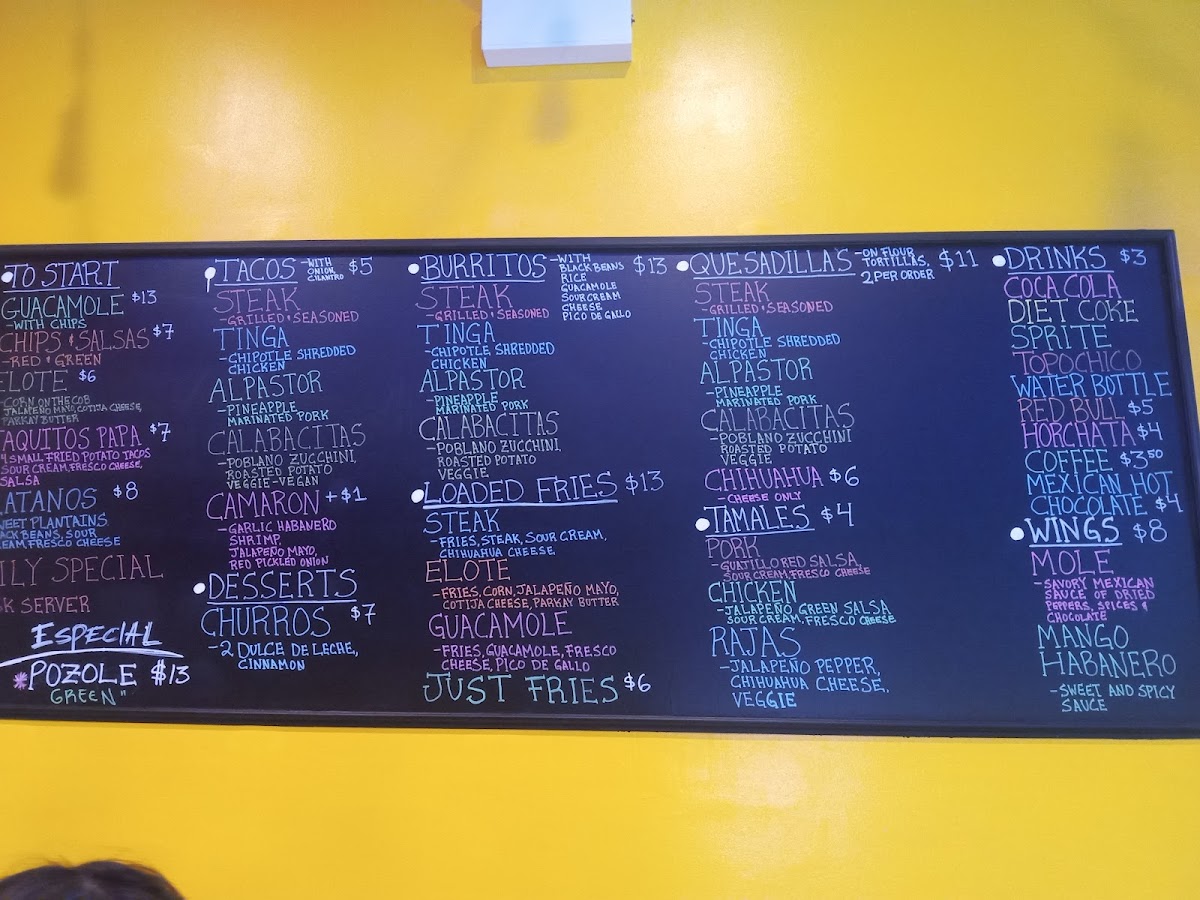 TO START
GUACAMOLE $13
-WITH CHIPS
CHIPS & SALSAS $7
-RED & GREEN
ELOTE $6
-CORN ON THE COB
JALAPEÑO MAYO, COTIJA CHEESE,
PARKAY BUTTER
TAQUITOS PAPA $7
4 SMALL FRIED POTATO TACOS
SOUR CREAM, FRESCO CHEESE,
SALSA
LATANOS $8
SWEET PLANTAINS
BLACK BEANS, SOUR
CREAM, FRESCO CHEESE
ILY SPECIAL
SK SERVER
ESPECIAL
*POZOLE $13
GREEN"
TACOS -WITH ONION, CILANTRO $5
STEAK
-GRILLED & SEASONED
TINGA
-CHIPOTLE SHREDDED
CHICKEN
ALPASTOR
-PINEAPPLE
MARINATED PORK
CALABACITAS
-POBLANO ZUCCHINI,
ROASTED POTATO
VEGGIE-VEGAN
CAMARON +$1
-GARLIC HABANERO
SHRIMP,
JALAPEÑO MAYO,
RED PICKLED ONION
DESSERTS
CHURROS $7
-2 DULCE DE LECHE,
CINNAMON
BURRITOS -WITH $13
BLACK BEANS
RICE
GUACAMOLE
SOUR CREAM
CHEESE
PICO DE GALLO
STEAK
-GRILLED & SEASONED
TINGA
-CHIPOTLE SHREDDED
CHICKEN
ALPASTOR
-PINEAPPLE
MARINATED PORK
CALABACITAS
-POBLANO ZUCCHINI,
ROASTED POTATO
VEGGIE
LOADED FRIES $13
STEAK
-FRIES, STEAK, SOUR CREAM,
CHIHUAHUA CHEESE
ELOTE
-FRIES, CORN, JALAPEÑO MAYO,
COTIJA CHEESE, PARKAY BUTTER
GUACAMOLE
-FRIES, GUACAMOLE, FRESCO
CHEESE, PICO DE GALLO
JUST FRIES $6
QUESADILLAS -ON FLOUR $11
TORTILLAS,
2 PER ORDER
STEAK
-GRILLED & SEASONED
TINGA
-CHIPOTLE SHREDDED
CHICKEN
ALPASTOR
-PINEAPPLE
MARINATED PORK
CALABACITAS
-POBLANO ZUCCHINI
ROASTED POTATO
VEGGIE
CHIHUAHUA $6
-CHEESE ONLY
TAMALES $4
PORK
-GUATILLO RED SALSA,
SOUR CREAM, FRESCO CHEESE
CHICKEN
-JALAPEÑO GREEN SALSA
SOUR CREAM, FRESCO CHEESE
RAJAS
-JALAPEÑO PEPPER,
CHIHUAHUA CHEESE,
VEGGIE
DRINKS $3
COCA COLA
DIET COKE
SPRITE
TOPOCHICO
WATER BOTTLE
RED BULL $5
HORCHATA $4
COFFEE $3.50
MEXICAN HOT
CHOCOLATE $4
WINGS $8
MOLE
-SAVORY MEXICAN
SAUCE OF DRIED
PEPPERS, SPICES &
CHOCOLATE
MANGO
HABANERO
-SWEET AND SPICY
SAUCE